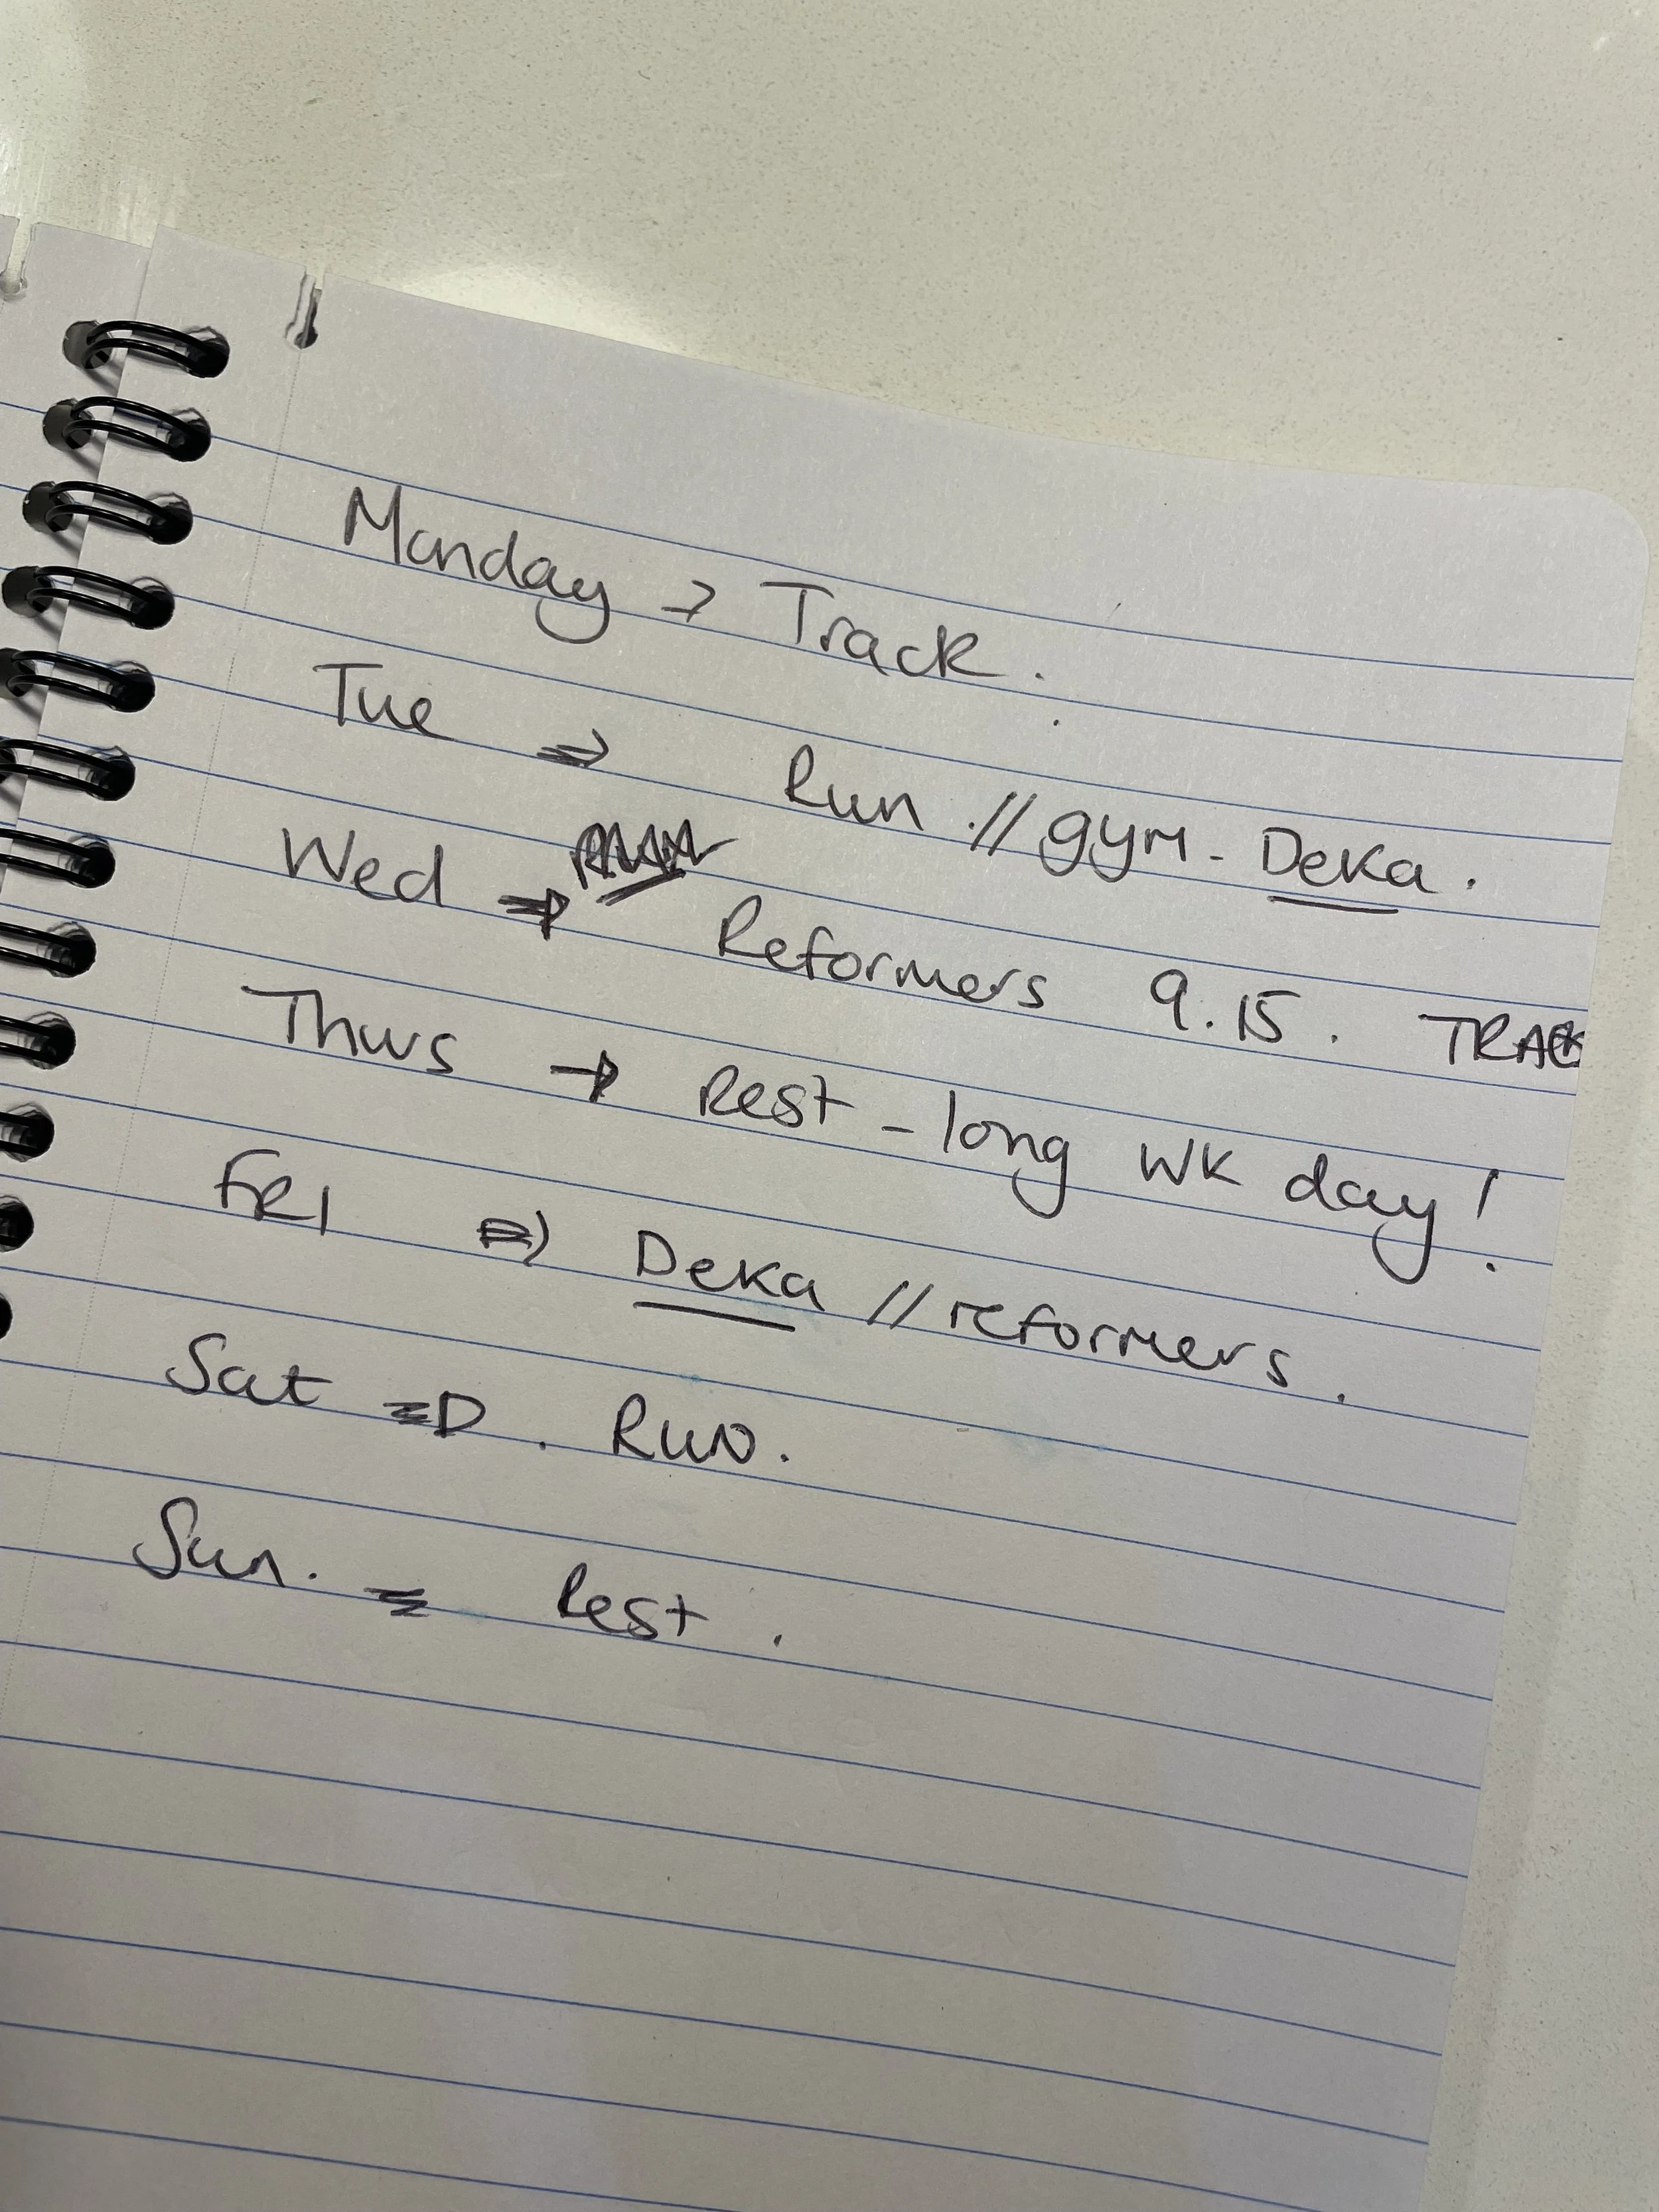 Monday → Track.
Tue ⇒ Run // gym - Deka.
Wed ⇒ Reformers 9.15. TRACK
Thurs → Rest - long wk day!
FRI ⇒ Deka // reformers.
Sat ⇒ . Run.
Sun. = Rest.